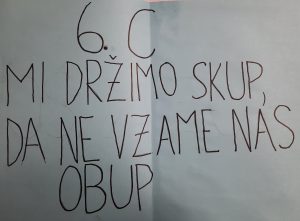 6. C
MI DRŽIMO SKUP,
DA NE VZAME NAS
OBUP